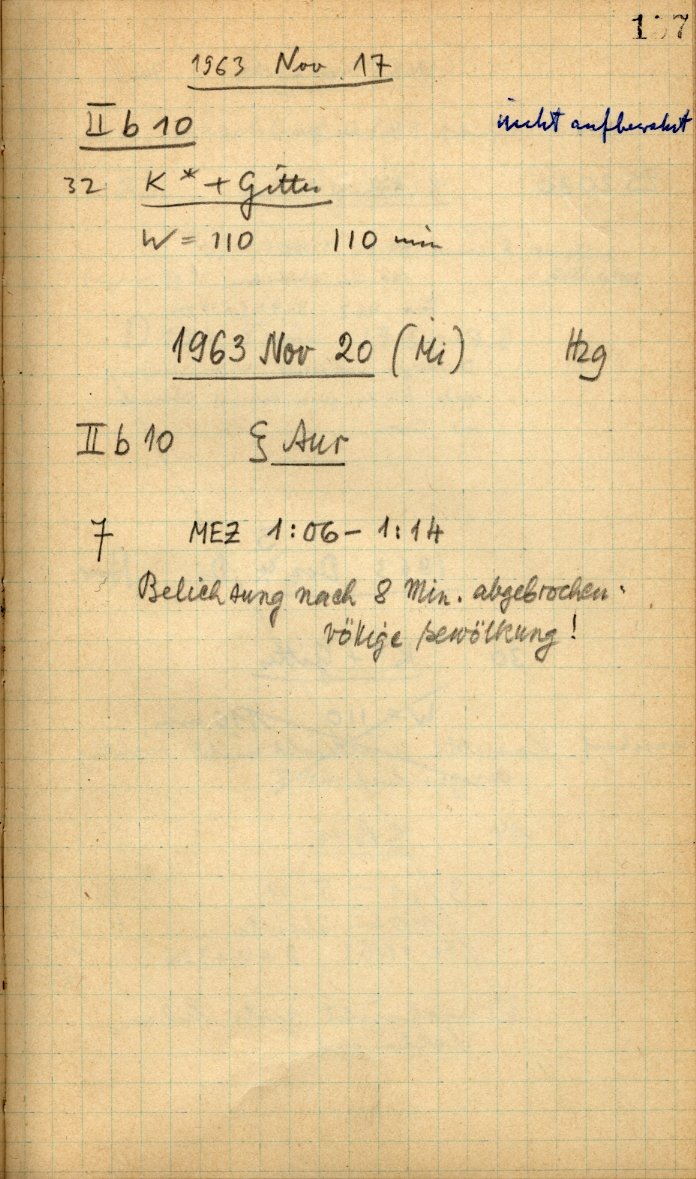 1963 Nov 17
II b 10 nicht aufbewahrt
32 K* + Gitter
W = 110 110 min
1963 Nov 20 (Mi) Hzg
II b 10 ξ Aur
7 MEZ 1:06 – 1:14
Belichtung nach 8 Min. abgebrochen.
völlige Bewölkung!